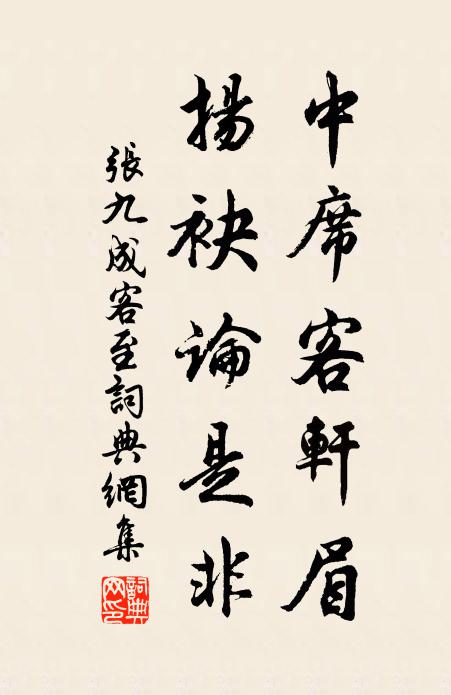 中席客軒眉
揚袂論是非
張九成客至詞典網集
詞典网印